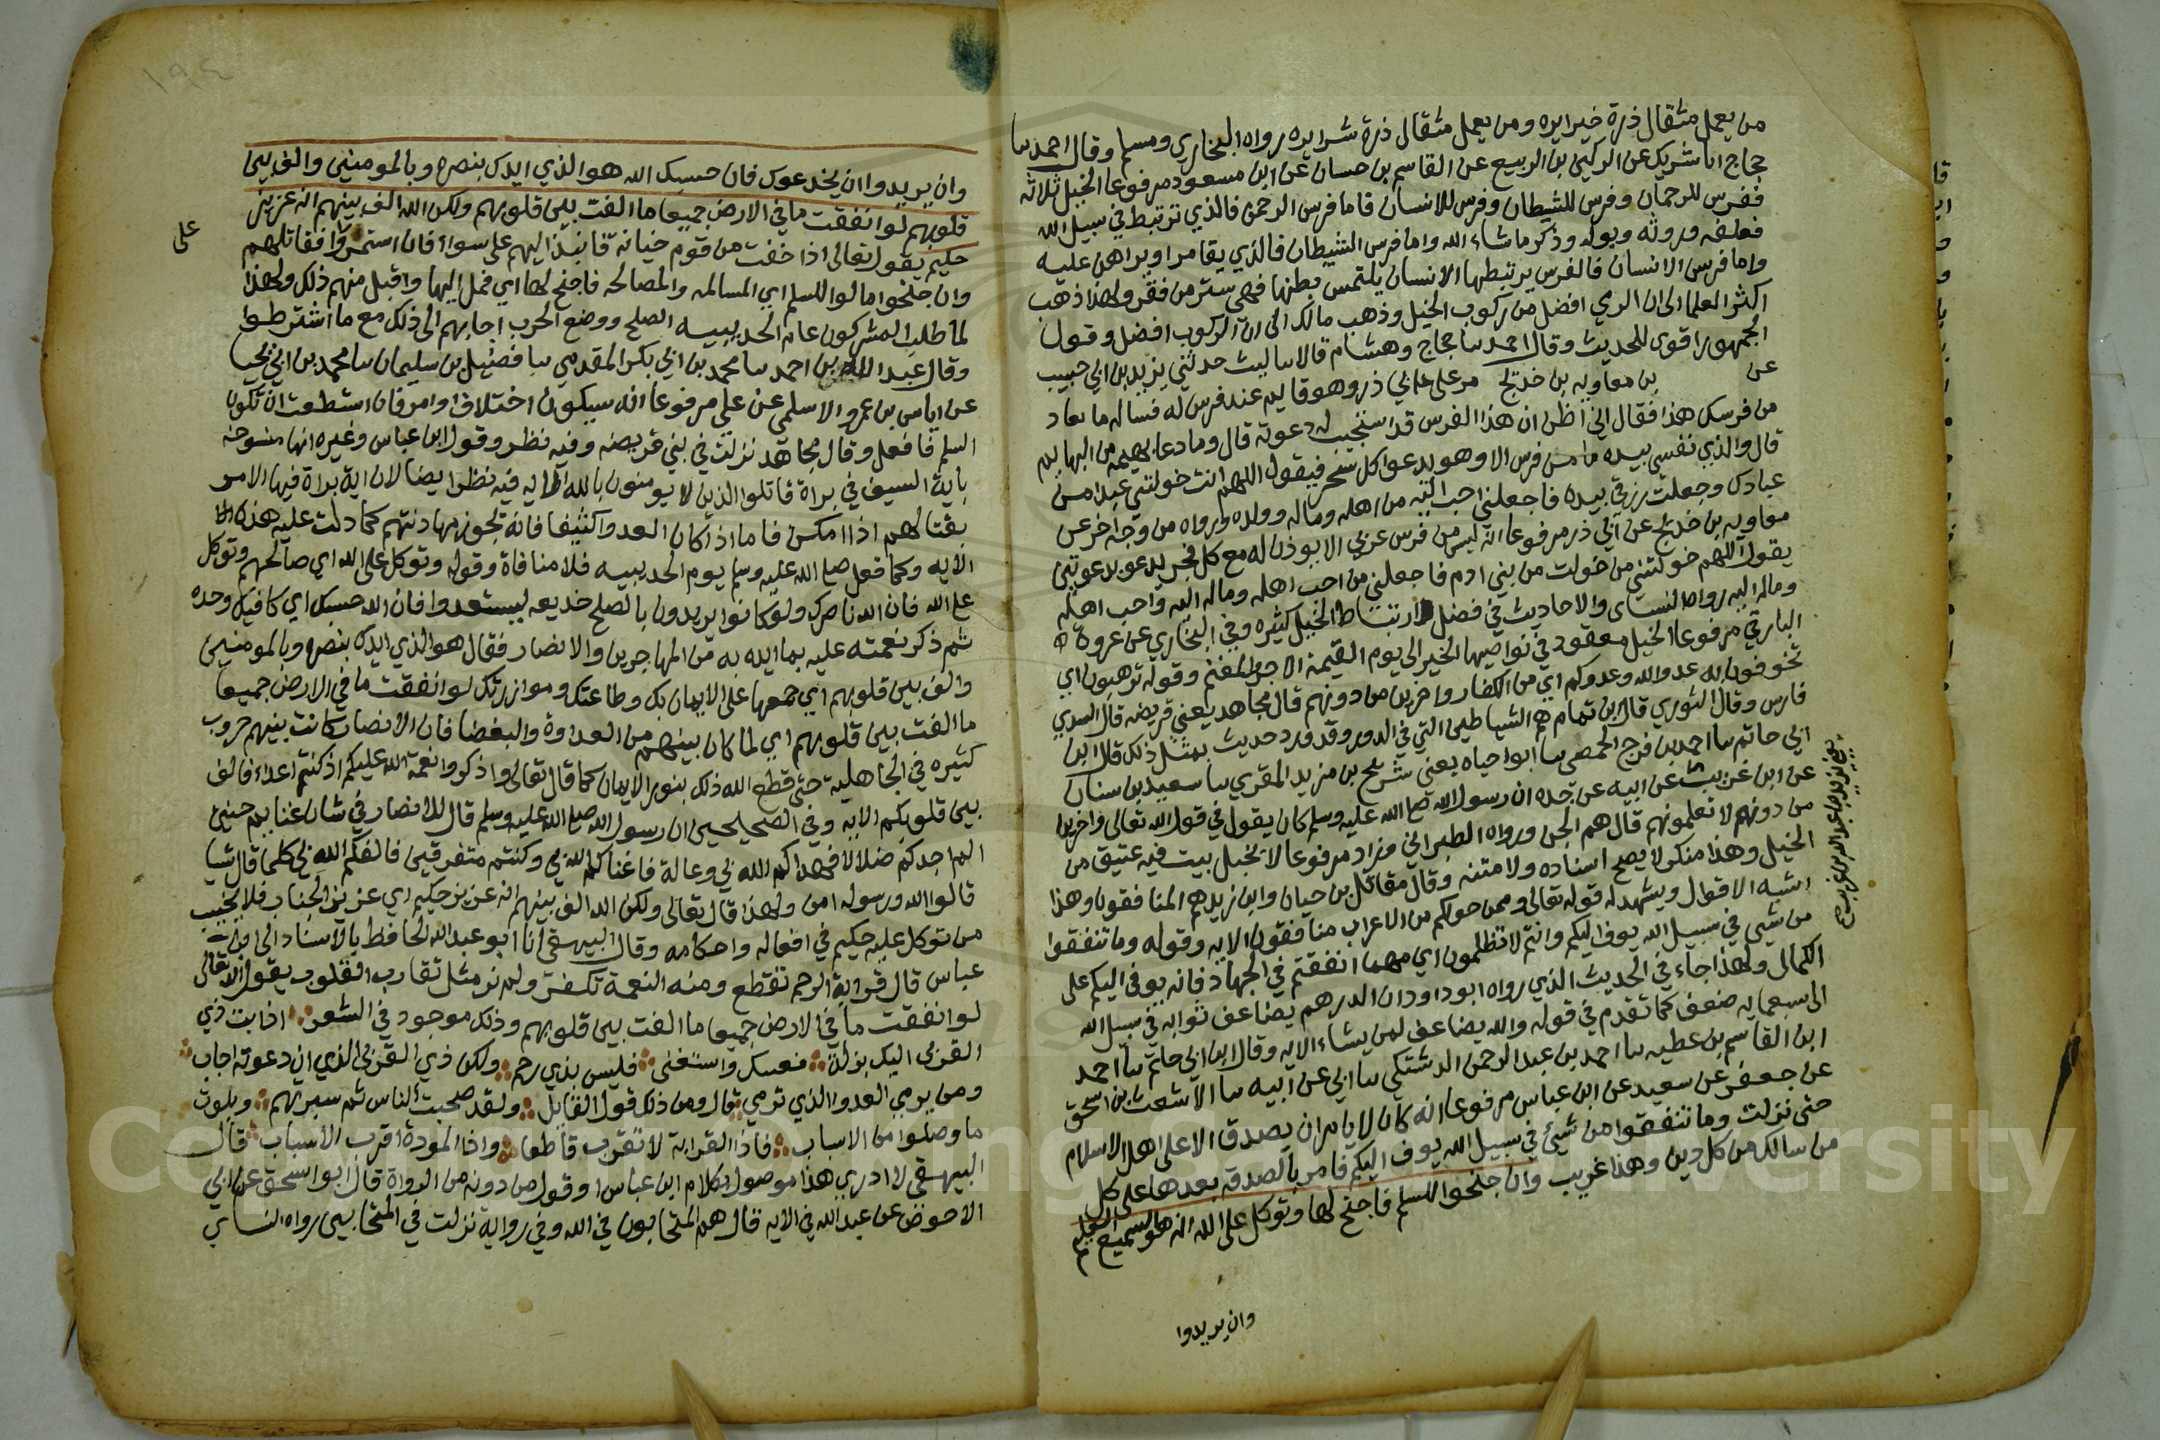 من يعمل مثقال ذرة خيرا يره ومن يعمل مثقال ذرة شرا يره رواه البخاري ومسلم وقال احمد سا
حجاج انا شريك عن الركين بن الربيع عن القاسم بن حسان عن ابن مسعود مرفوعا الخيل ثلاثة
ففرس للرحمان وفرس للشيطان وفرس للانسان فاما فرس الرحمن فالذي ترتبط في سبيل الله
فعلفه وروثه وبوله وذكر ما شاء الله واما فرس الشيطان فالذي يقامر او يراهن عليه
واما فرس الانسان فالفرس يرتبطها الانسان يلتمس بطنها فهي ستر من فقر ولهذا ذهب
اكثر العلما الى ان الرمي افضل من ركوب الخيل وذهب مالك الى ان الركوب افضل وقول
الجمهور اقوى للحديث وقال احمد سا حجاج وهشام قالا سا ليث حدثني يزيد بن ابي حبيب
عن بن معاويه بن خديج مر على ابي ذر وهو قايم عند فرس له فساله ما تعاد
من فرسك هذا فقال اني اظن ان هذا الفرس قد استجيب له دعوته قال وما دعا بهيمه من البهايم
قال والذي نفسي بيده ما من فرس الا وهو يدعو كل سحر فيقول اللهم انت خولتني عبدا من
عبادك وجعلت رزقي بيده فاجعلني احب اليه من اهله وماله وولده ورواه من وجه اخر عن
معاويه بن خديج عن ابي ذر مرفوعا انه ليس من فرس عربي الا يوذن له مع كل فجر يدعو بدعوتين
يقول اللهم خولتني من خولت من بني ادم فاجعلني من احب اهله وماله اليه او احب اهله
وماله اليه رواه النساي والاحاديث في فضل ارتباط الخيل كثيره وفي البخاري عن عروة
البارقي مرفوعا الخيل معقود في نواصيها الخير الى يوم القيمة الاجر والمغنم وقوله ترهبون اي
تخوفون به عدو الله وعدوكم اي من الكفار واخرين من دونهم قال مجاهد يعني قريضه قال السدي
فارس وقال الثوري قال ابن تمام هم الشياطين التي في الدور وقد ورد حديث بمثل ذلك قال ابن
ابي حاتم سا احمد بن فرج الحمصي سا ابو حياه يعني شريح بن مزيد المقري سا سعيد بن سنان
عن ابن غريب عن ابيه عن جده ان رسول الله صلى الله عليه وسلم كان يقول في قول الله تعالى واخرين
يعني يزيد بن عبد الله بن غريب صح
من دونهم لا تعلمونهم قال هم الجن ورواه الطبراني وزاد مرفوعا لا يخبل بيت فيه عتيق من
الخيل وهذا منكر لا يصح اسناده ولا متنه وقال مقاتل بن حيان وابن زيد هم المنافقون وهذا
اشبه الاقوال ويشهد له قوله تعالى وممن حولكم من الاعراب منافقون الايه وقوله وما تنفقوا
من شيي في سبيل الله يوف اليكم وانتم لا تظلمون اي مهما انفقتم في الجهاد فانه يوفى اليكم على
الكمال ولهذا جاء في الحديث الذي رواه ابو داود ان الدرهم يضاعف ثوابه في سبيل الله
الى سبعمايه ضعف كما تقدم في قوله والله يضاعف لمن يشاء الايه وقال ابن ابي حاتم سا احمد
ابن القاسم بن عطيه سا احمد بن عبد الرحمن الدشتكي سا ابي عن ابيه سا الاشعث بن اسحق
عن جعفر عن سعيد عن ابن عباس مرفوعا انه كان لا يامر ان يصدق الا على اهل الاسلام
حتى نزلت وما تنفقوا من شيئ في سبيل الله يوف اليكم فامر بالصدقه بعدها على كل
من سالك من كل دين وهذا غريب وان جنحوا للسلم فاجنح لها وتوكل على الله انه هو السميع العليم
وان يريدوا
١٩٤
وان يريدوا ان يخدعوك فان حسبك الله هو الذي ايدك بنصره وبالمومنين والف بين
قلوبهم لو انفقت ما في الارض جميعا ما الفت بين قلوبهم ولكن الله الف بينهم انه عزيز
حكيم يقول تعالى اذا خفت من قوم خيانة فانبذ اليهم على سواء فان استمروا فقاتلهم
على
وان جنحوا مالوا للسلم اي المسالمه والمصالحه فاجنح لها اي فمل اليها واقبل منهم ذلك ولهذا
لما طلب المشركون عام الحديبيه الصلح ووضع الحرب اجابهم الى ذلك مع ما اشترطوا
وقال عبد الله بن احمد سا محمد بن ابي بكر المقدمي سا فضيل بن سليمان سا محمد بن ابي يحيا
عن اياس بن عمرو الاسلمي عن علي مرفوعا انه سيكون اختلاف او امر فان استطعت ان تكون
السلم فافعل وقال مجاهد نزلت في بني قريضه وفيه نظر وقول ابن عباس وغيره انها منسوخه
باية السيف في براة قاتلوا الذين لا يومنون بالله الايه فيه نظر ايضا لان اية براة فيها الامر
بقتالهم اذا امكن فاما اذا كان العدو كثيفا فانه تجوز مهادنتهم كما دلت عليه هذه
الايه وكما فعل صلى الله عليه وسلم يوم الحديبيه فلا منافاة وقوله وتوكل على الله اي صالحهم وتوكل
على الله فان الله ناصرك ولو كانوا يريدون بالصلح خديعه ليستعدوا فان الله حسبك اي كافيك وحده
ثم ذكر نعمته عليه بما ايده به من المهاجرين والانصار فقال هو الذي ايدك بنصره وبالمومنين
والف بين قلوبهم اي جمعها على الايمان بك وطاعتك وموازرتك لو انفقت ما في الارض جميعا
ما الفت بين قلوبهم اي لما كان بينهم من العداوة والبغضا فان الانصار كانت بينهم حروب
كثيره في الجاهلية حتى قطع الله ذلك بنور الايمان كما قال تعالى واذكروا نعمة الله عليكم اذ كنتم اعداء فالف
بين قلوبكم الايه وفي الصحيحين ان رسول الله صلى الله عليه وسلم قال للانصار في شان غنايم حنين
الم اجدكم ضلالا فهداكم الله بي وعالة فاغناكم الله بي وكنتم متفرقين فالفكم الله بي كلما قال شيا
قالوا الله ورسوله امن ولهذا قال تعالى ولكن الله الف بينهم انه عزيز حكيم اي عزيز الجناب فلا يخيب
من توكل عليه حكيم في افعاله واحكامه وقال البيهقي انا ابو عبد الله الحافظ بالاسناد الى ابن
عباس قال قرابة الرحم تقطع ومنه النعمة تكفر ولم نر مثل تقارب القلوب يقول الله تعالى
لو انفقت ما في الارض جميعا ما الفت بين قلوبهم وذلك موجود في الشعر اذا بت ذي
القربى اليك بزلة فعسك واستغنى فليس بذي رحم ولكن ذي القربى الذي ان دعوته اجاب
ومن يرمي العدو الذي ترمي قال ومن ذلك قول القايل ولقد صحبت الناس ثم سبرتهم وبلوت
ما وصلوا من الاسباب فاذا القرابة لا تقرب قاطعا واذا المودة اقرب الاسباب قال
البيهقي لا ادري هذا موصول بكلام ابن عباس او قول من دونه من الرواة قال ابو اسحق عن ابي
الاحوص عن عبد الله في الايه قال هم المتحابون في الله وفي رواية نزلت في المتحابين رواه النساي